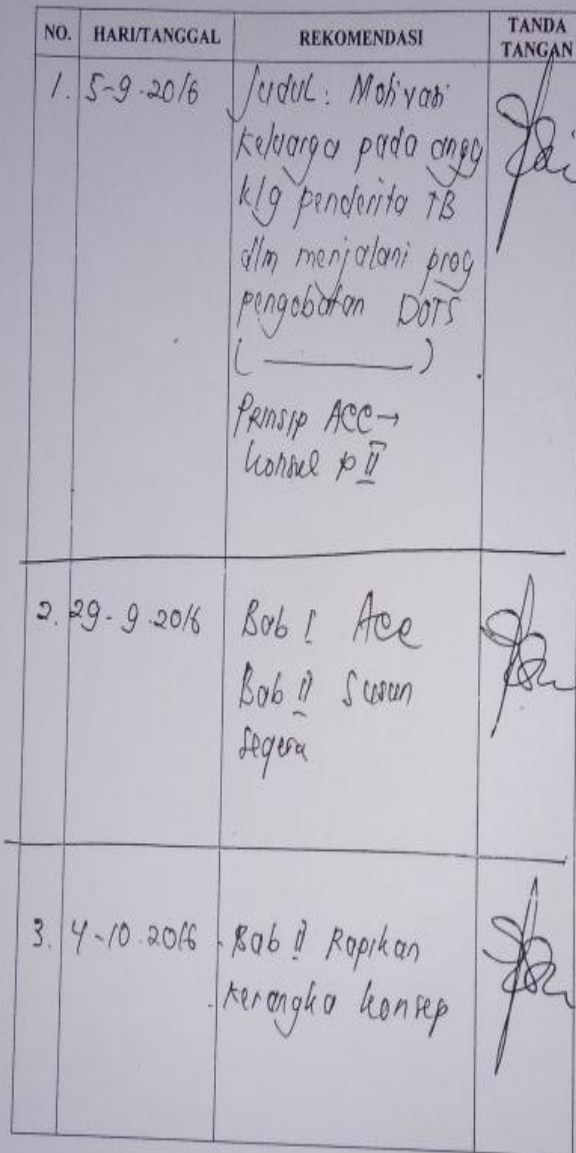 NO. HARI/TANGGAL REKOMENDASI TANDA TANGAN
1. 5-9-2016 Judul: Motivasi
keluarga pada angg
klg penderita TB
dlm menjalani prog
pengobatan DOTS
( ______ )
Prinsip ACC →
konsul p II
2. 29-9-2016 Bab I Acc
Bab II Susun
segera
3. 4-10-2016 - Bab II Rapikan
- kerangka konsep